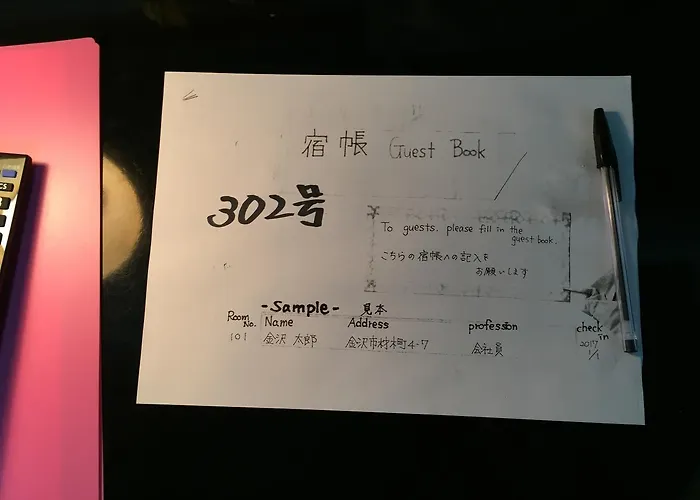 宿帳 Guest Book
302号
To guests. please fill in the
guest book.
こちらの宿帳への記入を
お願いします
-Sample- 見本
Room No. Name Address profession check in
101 金沢 太郎 金沢市材木町4-7 会社員 2017 1/1